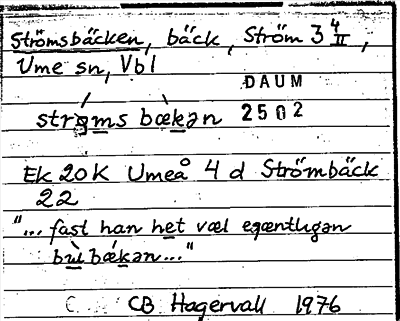 Strömsbäcken, bäck, Ström 3 4/II,
Ume sn, Vbl
DAUM
strø̀ms bækan 2502
Ek 20K Umeå 4 d Strömbäck
22
"... fast han het væl egæntligən
bul bækan..."
CB Hagervall 1976